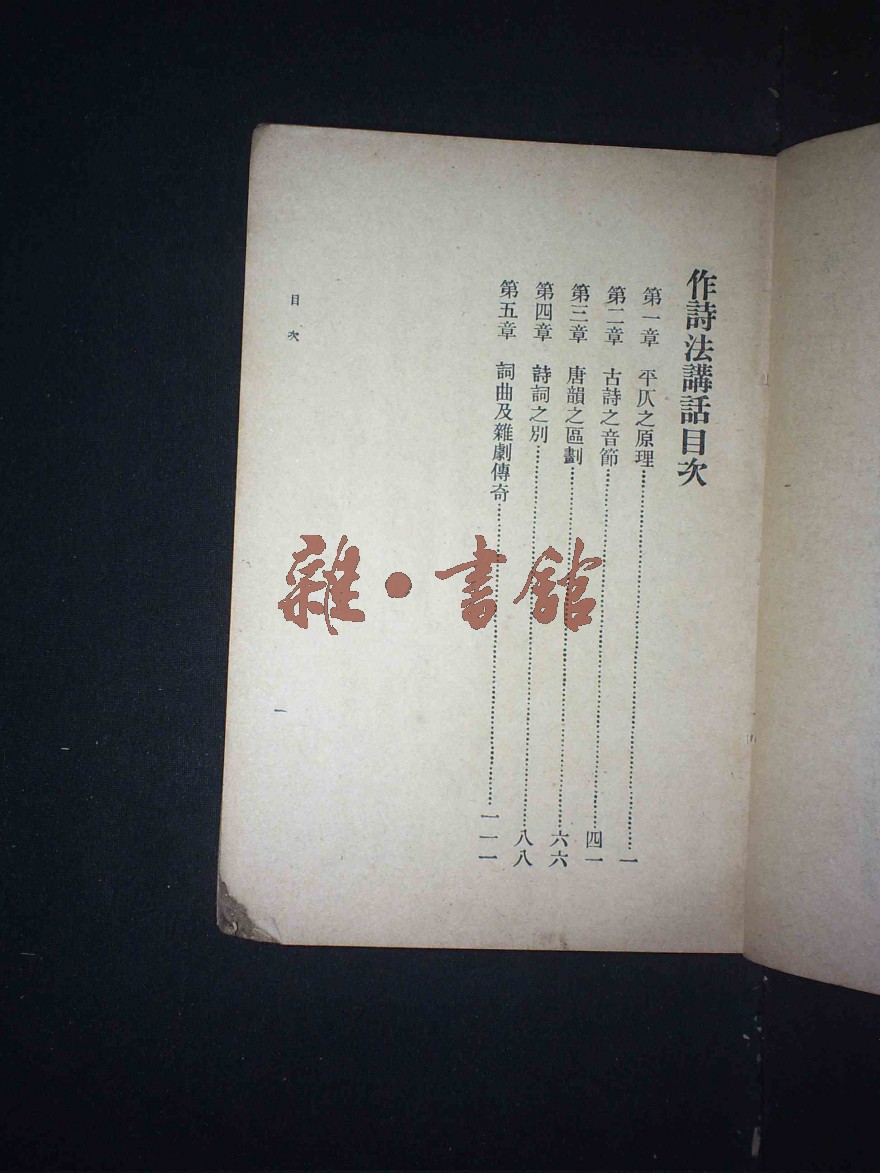 作詩法講話目次
第一章　平仄之原理……一
第二章　古詩之音節……四一
第三章　唐韻之區劃……六六
第四章　詩詞之別……八八
第五章　詞曲及雜劇傳奇……一一一
目次
一
雜·書館